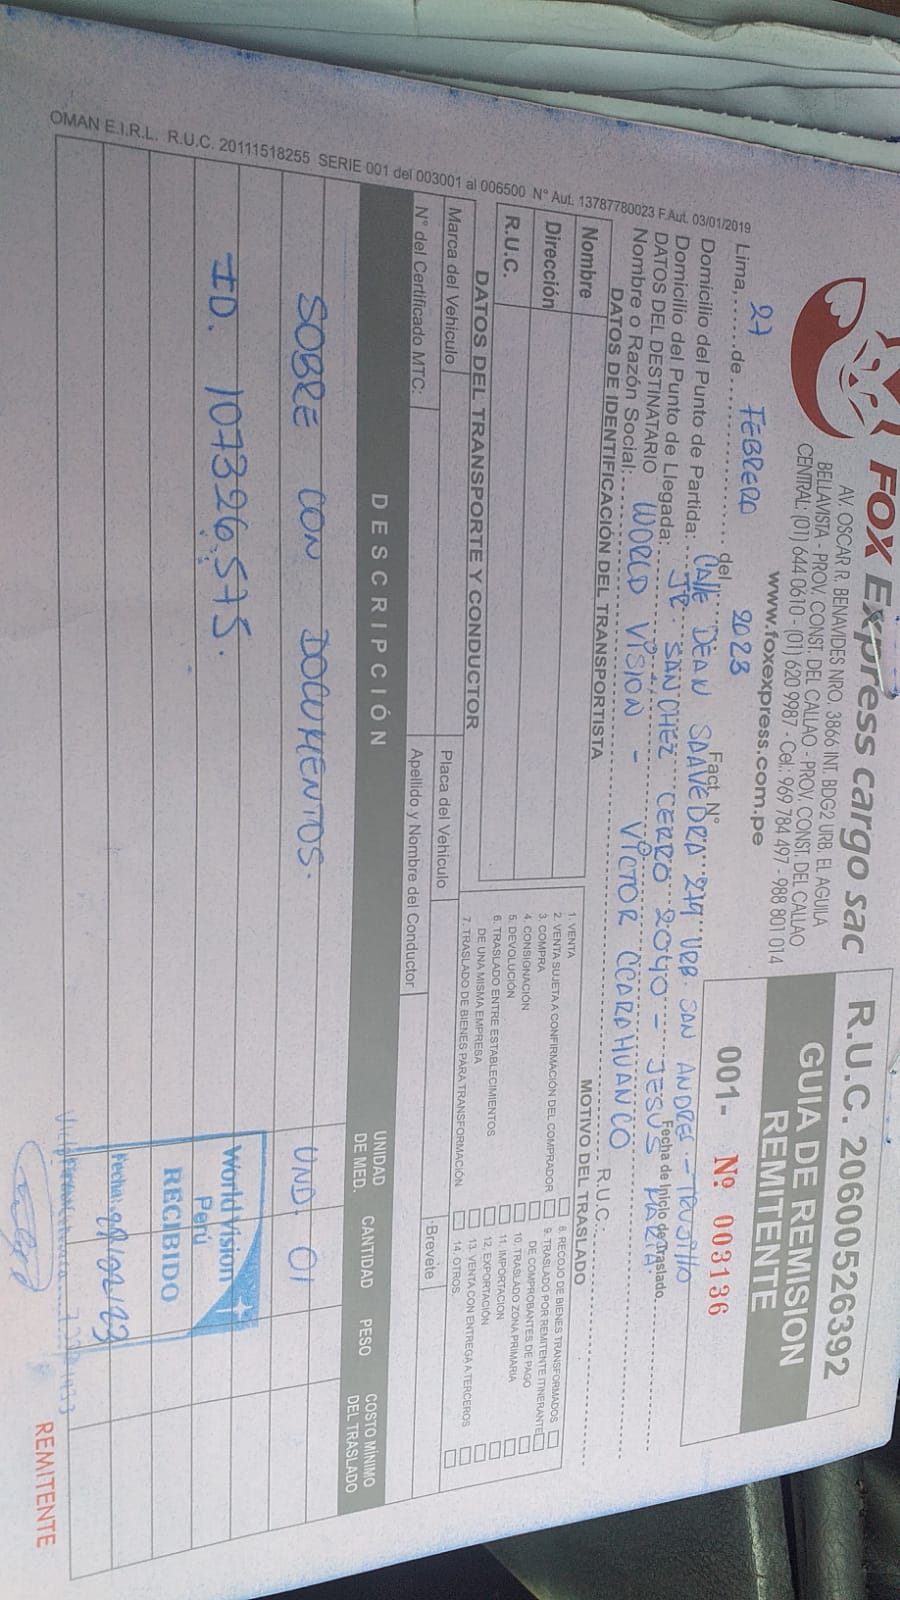 FOX Express cargo sac
AV. OSCAR R. BENAVIDES NRO. 3866 INT. BDG2 URB. EL AGUILA
BELLAVISTA - PROV. CONST. DEL CALLAO - PROV. CONST. DEL CALLAO
CENTRAL: (01) 644 0610 - (01) 620 9987 - Cel.: 969 784 497 - 988 801 014
www.foxexpress.com.pe
R.U.C. 20600526392
GUIA DE REMISION
REMITENTE
001- Nº 003136
Lima, 27 de FEBRERO del 2023 Fact. N°
Fecha de Inicio de Traslado
Domicilio del Punto de Partida: CALLE DEAN SAAVEDRA 279 URB. SAN ANDRES - TRUJILLO
Domicilio del Punto de Llegada: JR. SANCHEZ CERRO 2040 - JESUS MARIA.
DATOS DEL DESTINATARIO
Nombre o Razón Social: WORLD VISION - VICTOR CCARAHUANCO R.U.C.
DATOS DE IDENTIFICACIÓN DEL TRANSPORTISTA
Nombre
Dirección
R.U.C.
MOTIVO DEL TRASLADO
1. VENTA
2. VENTA SUJETA A CONFIRMACIÓN DEL COMPRADOR
3. COMPRA
4. CONSIGNACIÓN
5. DEVOLUCIÓN
6. TRASLADO ENTRE ESTABLECIMIENTOS
DE UNA MISMA EMPRESA
7. TRASLADO DE BIENES PARA TRANSFORMACIÓN
8. RECOJO DE BIENES TRANSFORMADOS
9. TRASLADO POR REMITENTE ITINERANTE
DE COMPROBANTES DE PAGO
10. TRASLADO ZONA PRIMARIA
11. IMPORTACION
12. EXPORTACIÓN
13. VENTA CON ENTREGA A TERCEROS
14. OTROS
DATOS DEL TRANSPORTE Y CONDUCTOR
Marca del Vehiculo Placa del Vehiculo
N° del Certificado MTC: Apellido y Nombre del Conductor Brevete
DESCRIPCIÓN UNIDAD DE MED. CANTIDAD PESO COSTO MÍNIMO DEL TRASLADO
SOBRE CON DOCUMENTOS. UND. 01
ID. 107326575.
World Vision
Perú
RECIBIDO
Fecha: 28/02/23
OMAN E.I.R.L. R.U.C. 20111518255 SERIE 001 del 003001 al 006500 N° Aut. 13787780023 F.Aut. 03/01/2019
REMITENTE